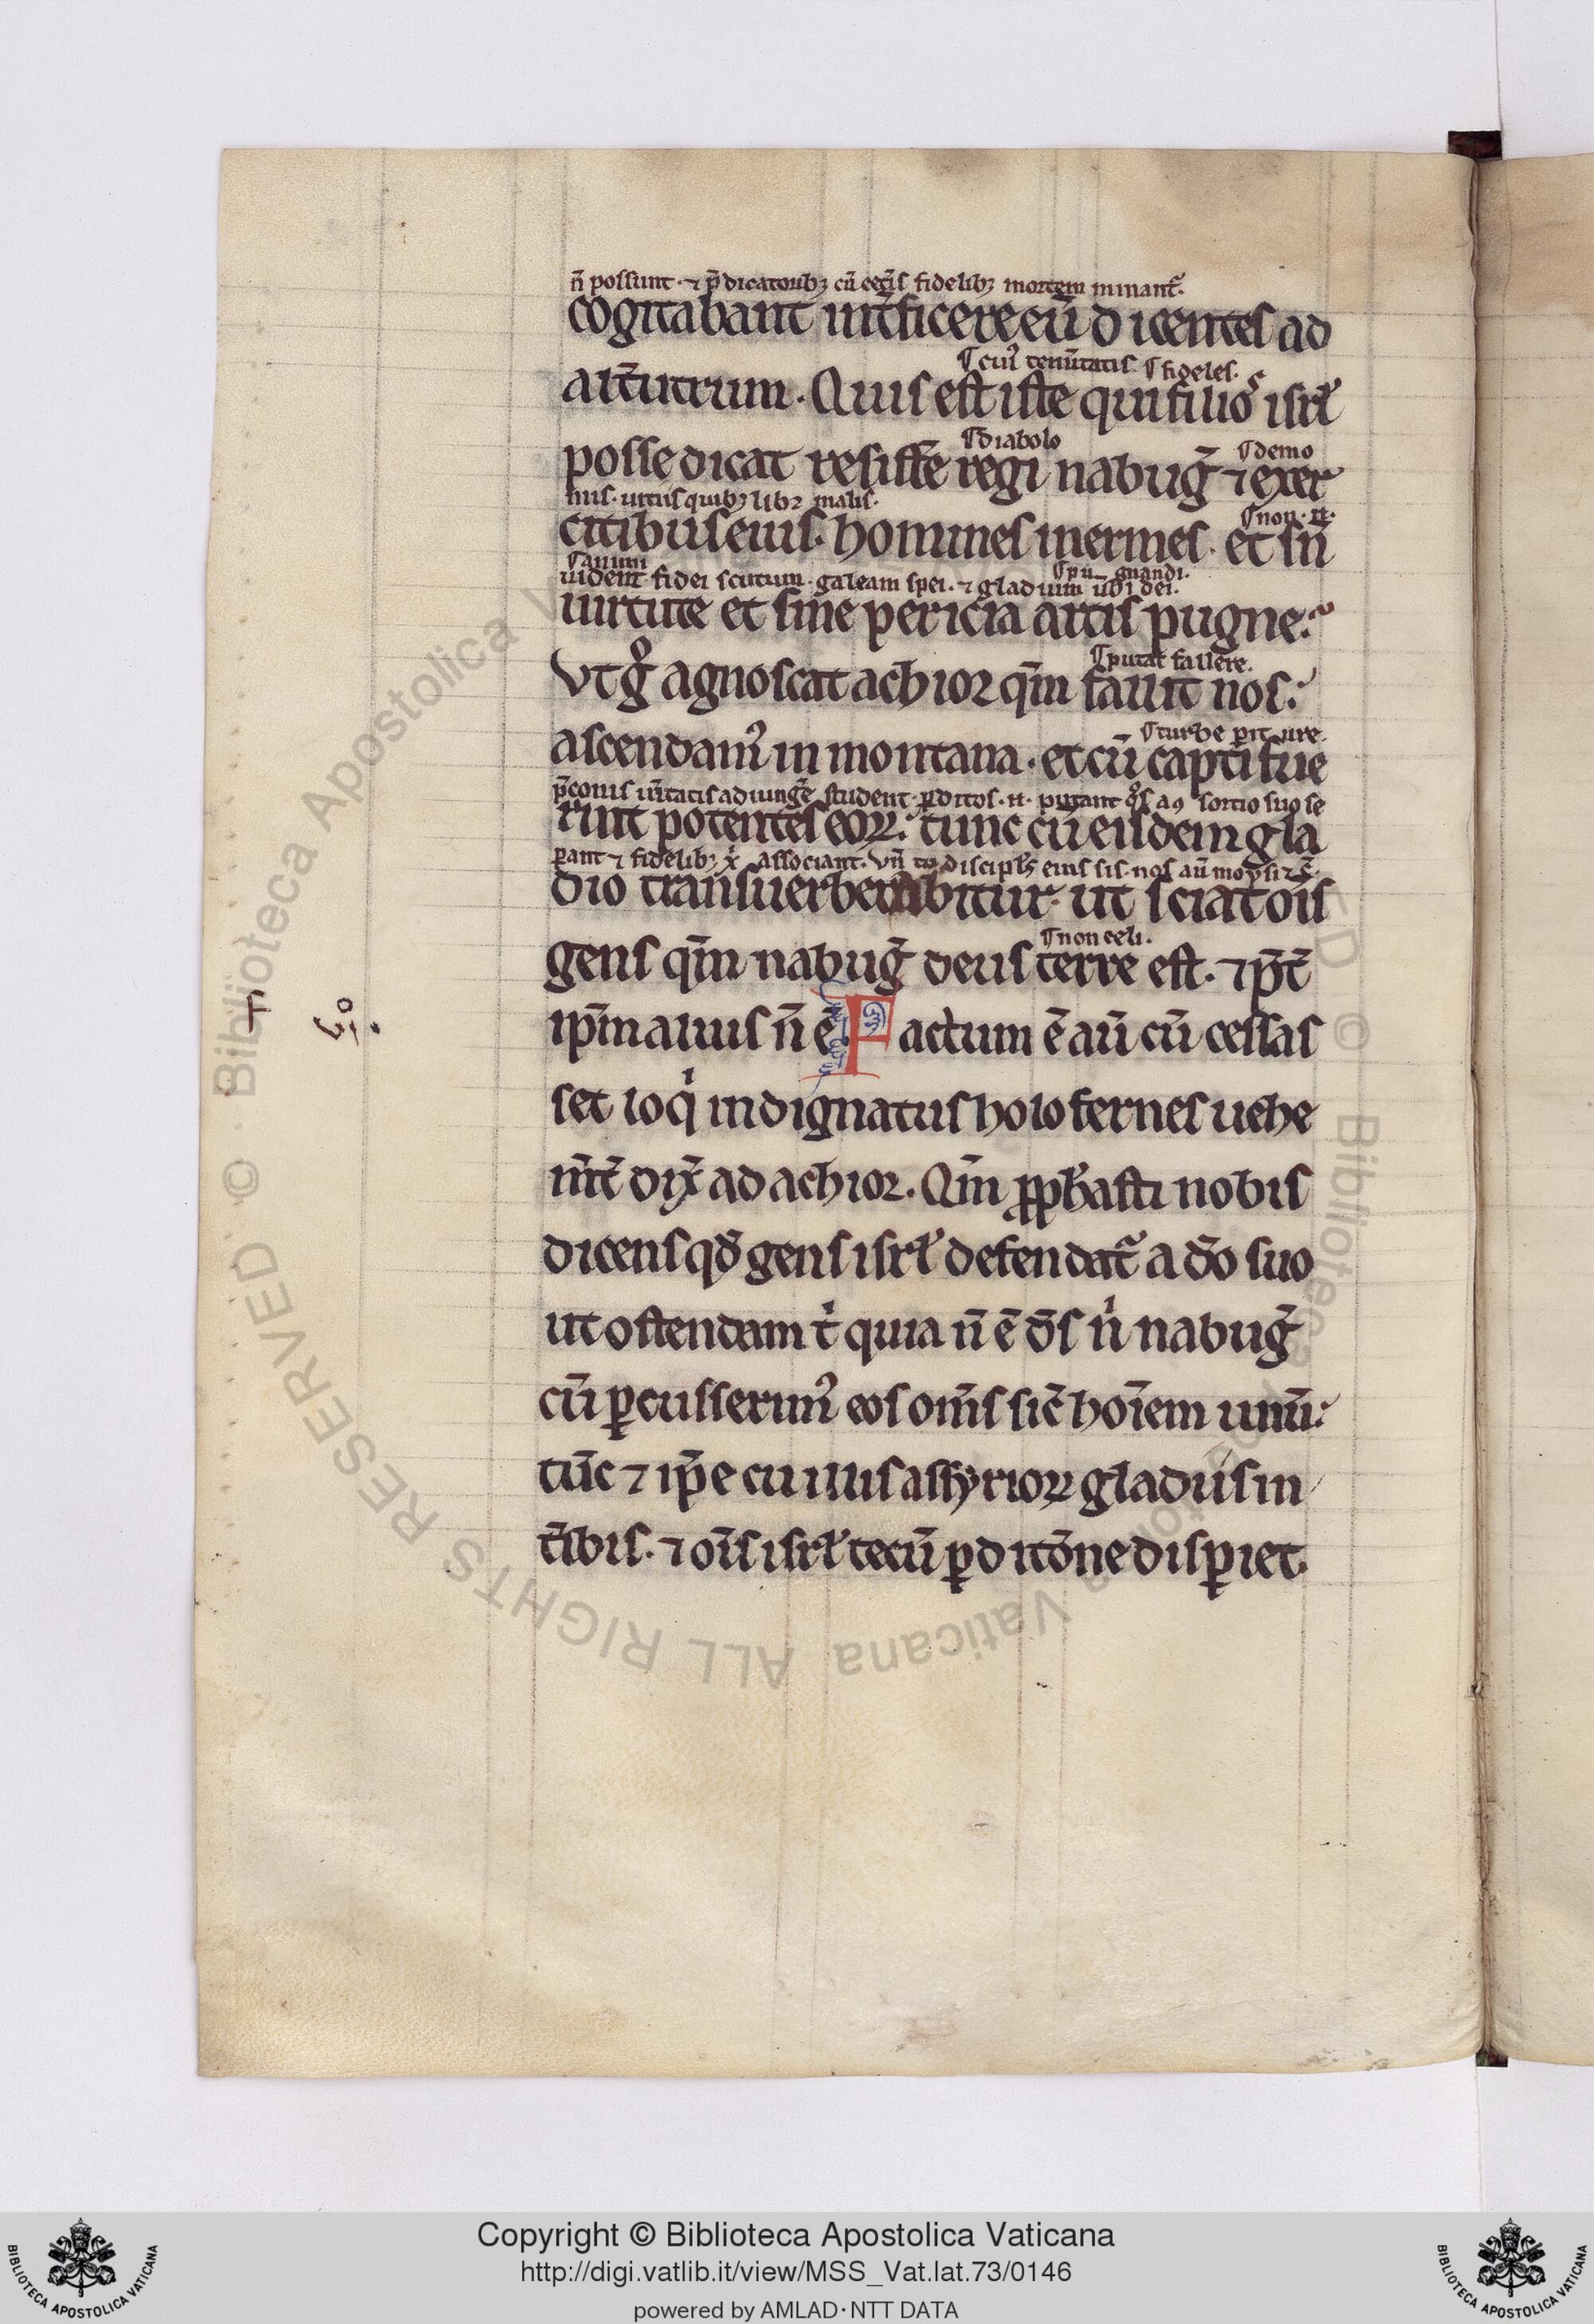 n̄ possunt · ⁊ p̄dicatorib; cū cet̄is fidelib; mortem minant᷑.
cogitabant int̄ficere eū dicentes ad
¶ cuiꝰ temītatis. ¶ fideles.
alt̄utrum. Quis est iste qui filioˢ isrl̄
¶ diabolo ¶ demo
posse dicat resist̄e regi nabuḡ ⁊ exer
nus.
citibus eius. homines inermes. et sn̄
¶ non · n̄.
uident fidei scutum. galeam spei. ⁊ gladium ūbi dei.
¶ animi ¶ pugnandi.
uirtute et sine pericia artis pugne.
¶ putat fallere.
Vt gͦ agnoscat achior qm̄ fallit nos.
¶ turbe pit᷑ ure.
ascendamꝰ in montana. et cū capti fue
p̄conis ūitatis adiung̃e student. ꝑditos .n. putant
rint potentes eoꝝ. tunc cū eisdem gla
ꝑant ⁊ fidelib; x̄ associant. Vn̄ tu discipl̄s eius sis. nos aū moysi ⁊c̄.
dio transuerberabitur. ut sciat oīs
¶ non celi.
gens qm̄ nabuḡ deus terre est. ⁊ p̄t̄
ip̄m alius n̄ ē Factum ē aū cū cessas
set loqⁱ indignatus holofernes uehe
m̄t̄ dix̄ ad achior. Qm̄ ꝓph̄asti nobis
dicens qđ gens isrl̄ defendat᷑ a dō suo
ut ostendam tⁱ quia n̄ ē d̄s nⁱ nabuḡ
cū ꝑcusserimꝰ eos om̄s sic̄ hoīem unū.
tūc ⁊ ip̄e cū illis assyrioꝝ gladiis in
t̄ibis. ⁊ oīs isrl̄ tecū ꝑditōne disꝑiet.
Copyright © Biblioteca Apostolica Vaticana
http://digi.vatlib.it/view/MSS_Vat.lat.73/0146
powered by AMLAD·NTT DATA
BIBLIOTECA APOSTOLICA VATICANA
BIBLIOTECA APOSTOLICA VATICANA
© Biblioteca Apostolica Vaticana ALL RIGHTS RESERVED